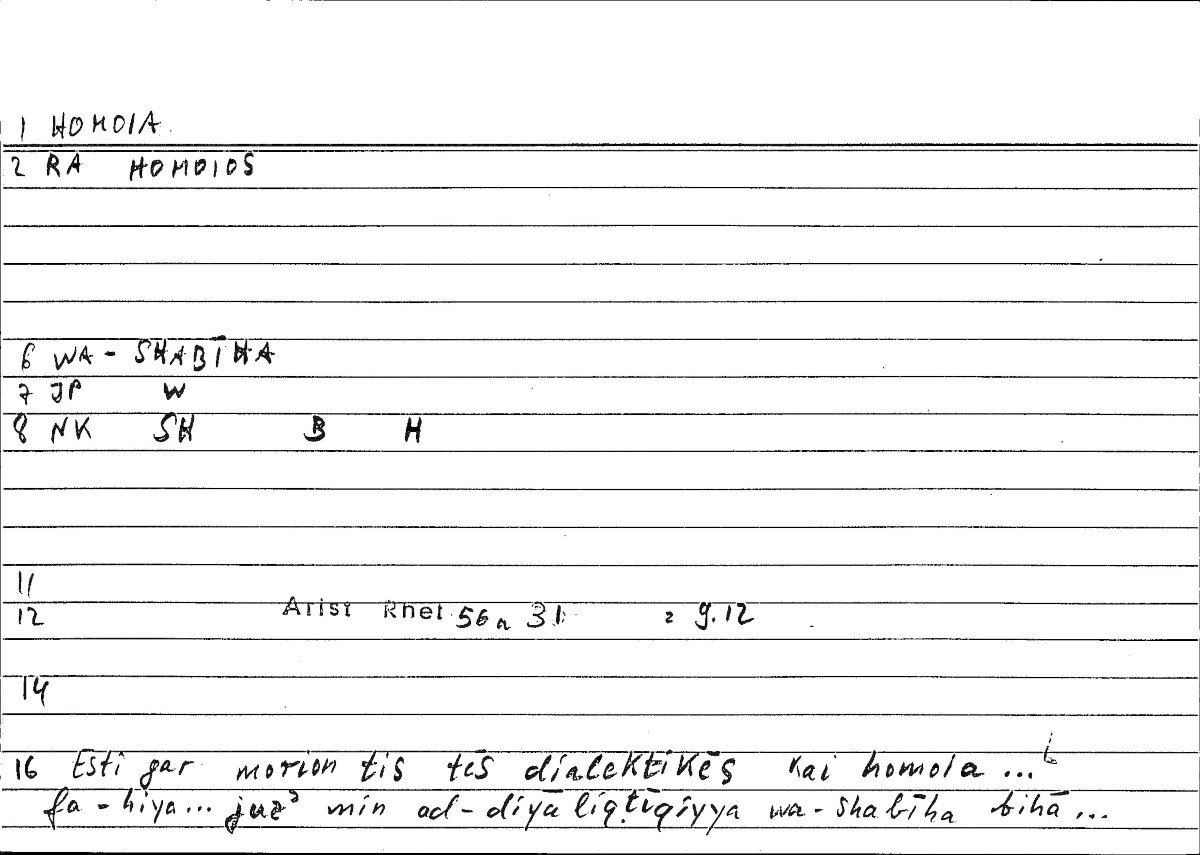 1 HOMOIA
2 RA HOMOIOS
6 WA - SHABĪHA
7 JP W
8 NK SH B H
11
12 Arist Rhet 56a 31 = 9.12
14
16 Esti gar morion tis tēs dialektikēs kai homoia ...
fa - hiya... juzʾ min ad-diyāliqṭīqiyya wa-shabīha bihā ...